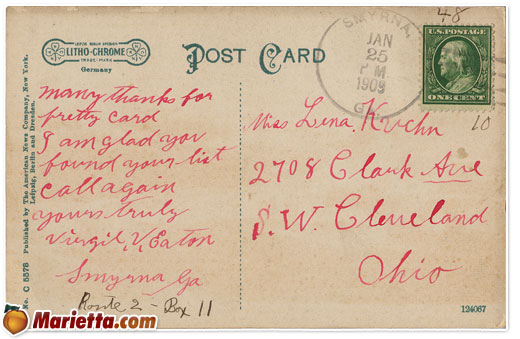 48
LEIPZIG BERLIN DRESDEN
LITHO-CHROME
TRADE-MARK
Germany
POST CARD
SMYRNA,
JAN
25
P M
1909
GA.
U.S. POSTAGE
ONE CENT
many thanks for
pretty card
I am glad yov
found your list
call again
yours truly
Virgil, V, Eaton
Smyrna Ga
Route 2 - Box 11
Miss Lena Kuehn
2708 Clark Ave
S. W. Cleveland
Ohio
10
No. C 5578 Published by The American News Company, New York.
Leipzig, Berlin and Dresden.
124067
Marietta.com